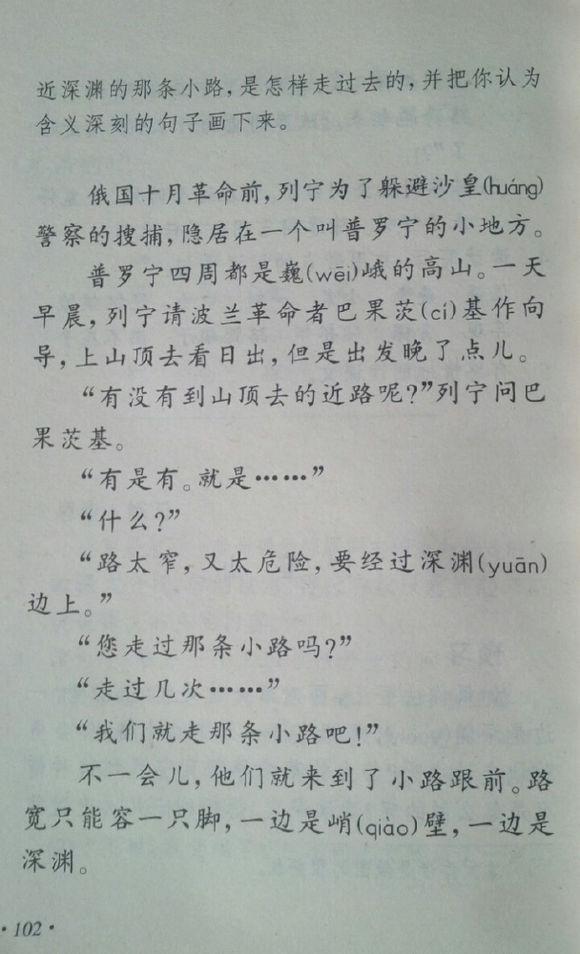 近深渊的那条小路，是怎样走过去的，并把你认为
含义深刻的句子画下来。
俄国十月革命前，列宁为了躲避沙皇(huáng)
警察的搜捕，隐居在一个叫普罗宁的小地方。
普罗宁四周都是巍(wēi)峨的高山。一天
早晨，列宁请波兰革命者巴果茨(cí)基作向
导，上山顶去看日出，但是出发晚了点儿。
“有没有到山顶去的近路呢？”列宁问巴
果茨基。
“有是有。就是……”
“什么？”
“路太窄，又太危险，要经过深渊(yuān)
边上。”
“您走过那条小路吗？”
“走过几次……”
“我们就走那条小路吧！”
不一会儿，他们就来到了小路跟前。路
宽只能容一只脚，一边是峭(qiào)壁，一边是
深渊。
·102·